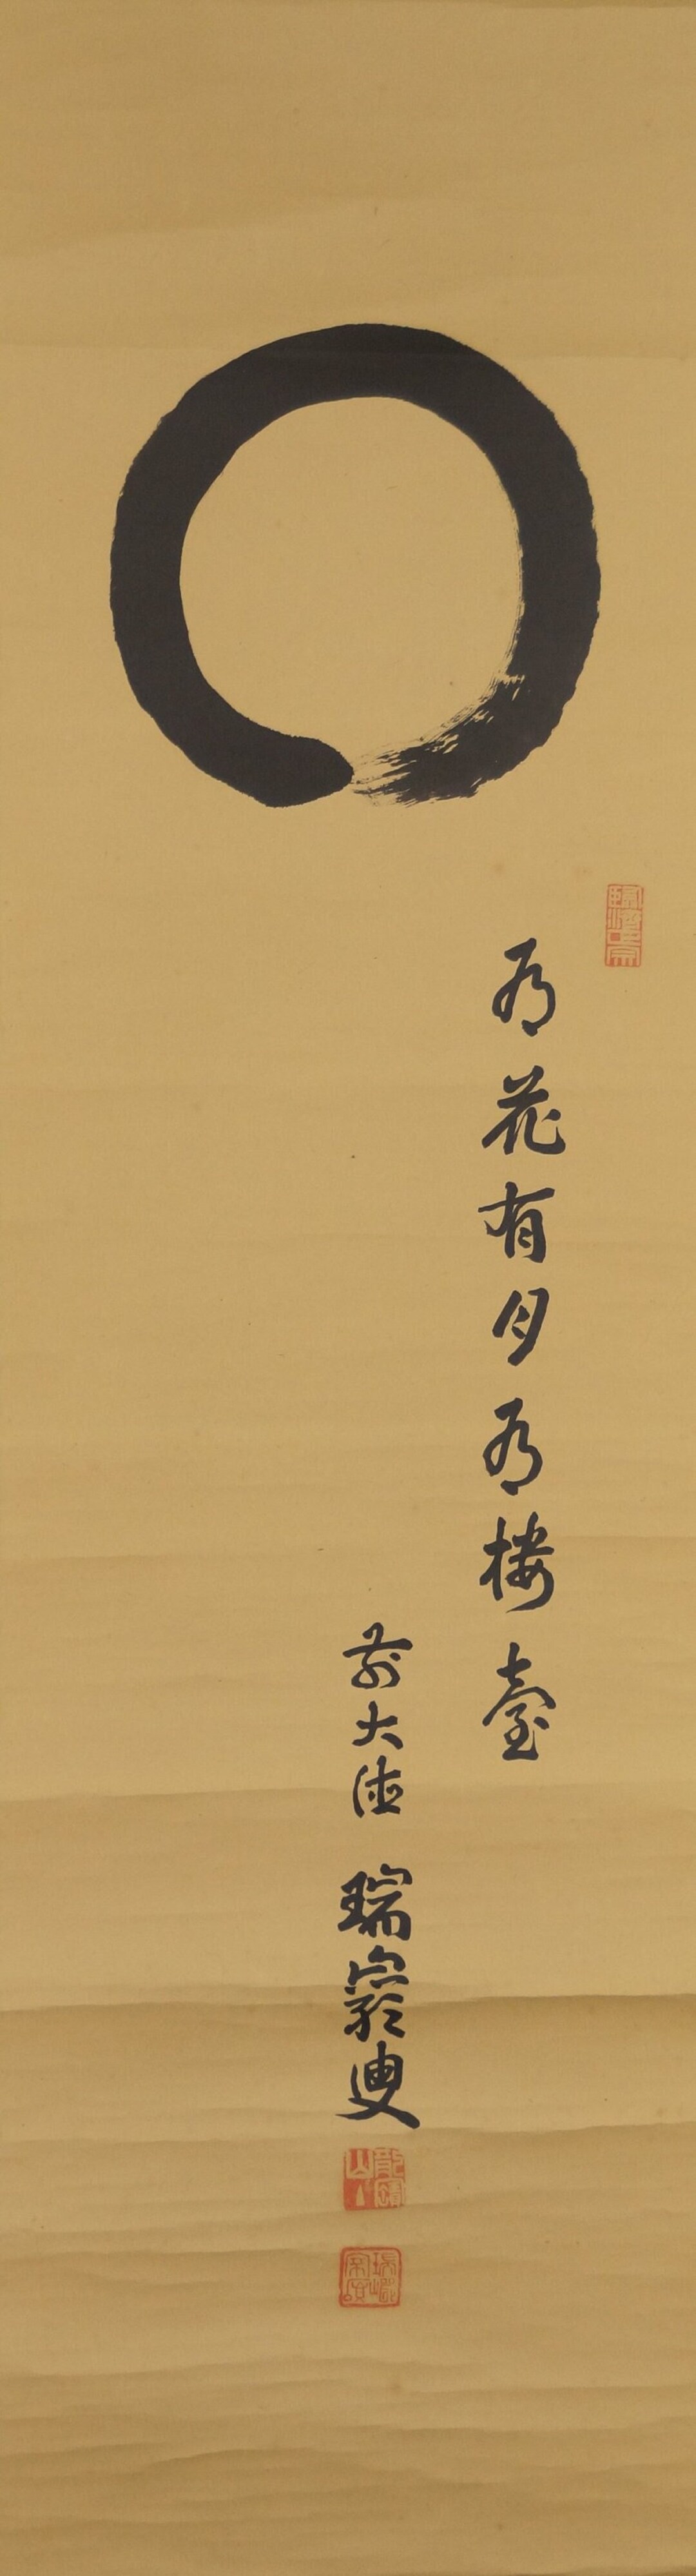 有花有月有楼臺
前大徳 瑞巌叟